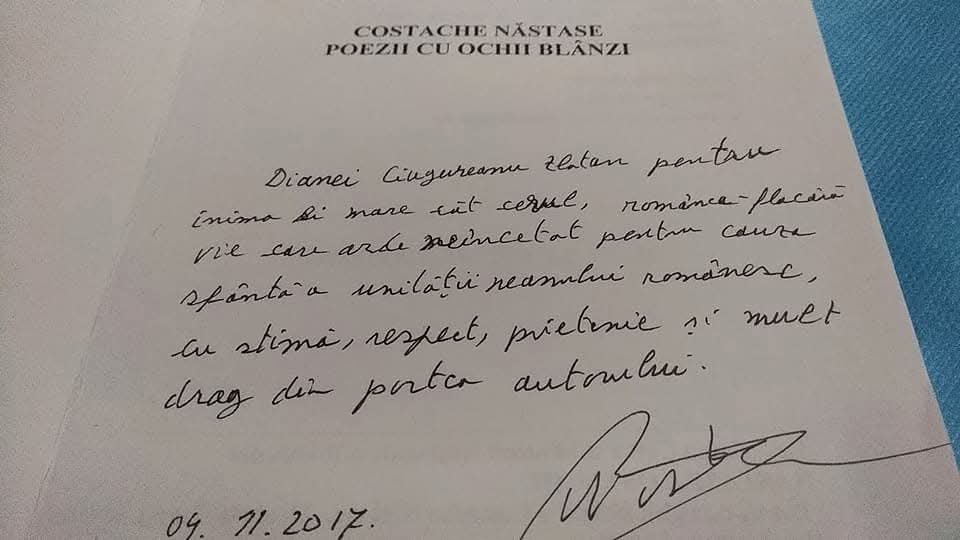 COSTACHE NĂSTASE
POEZII CU OCHII BLÂNZI
Dianei Ciugureanu Zlatan pentru
inima ei mare cât cerul, românca-flacără
vie care arde neîncetat pentru cauza
sfântă a unității neamului românesc,
cu stimă, respect, prietenie și mult
drag din partea autorului.
09. 11. 2017.